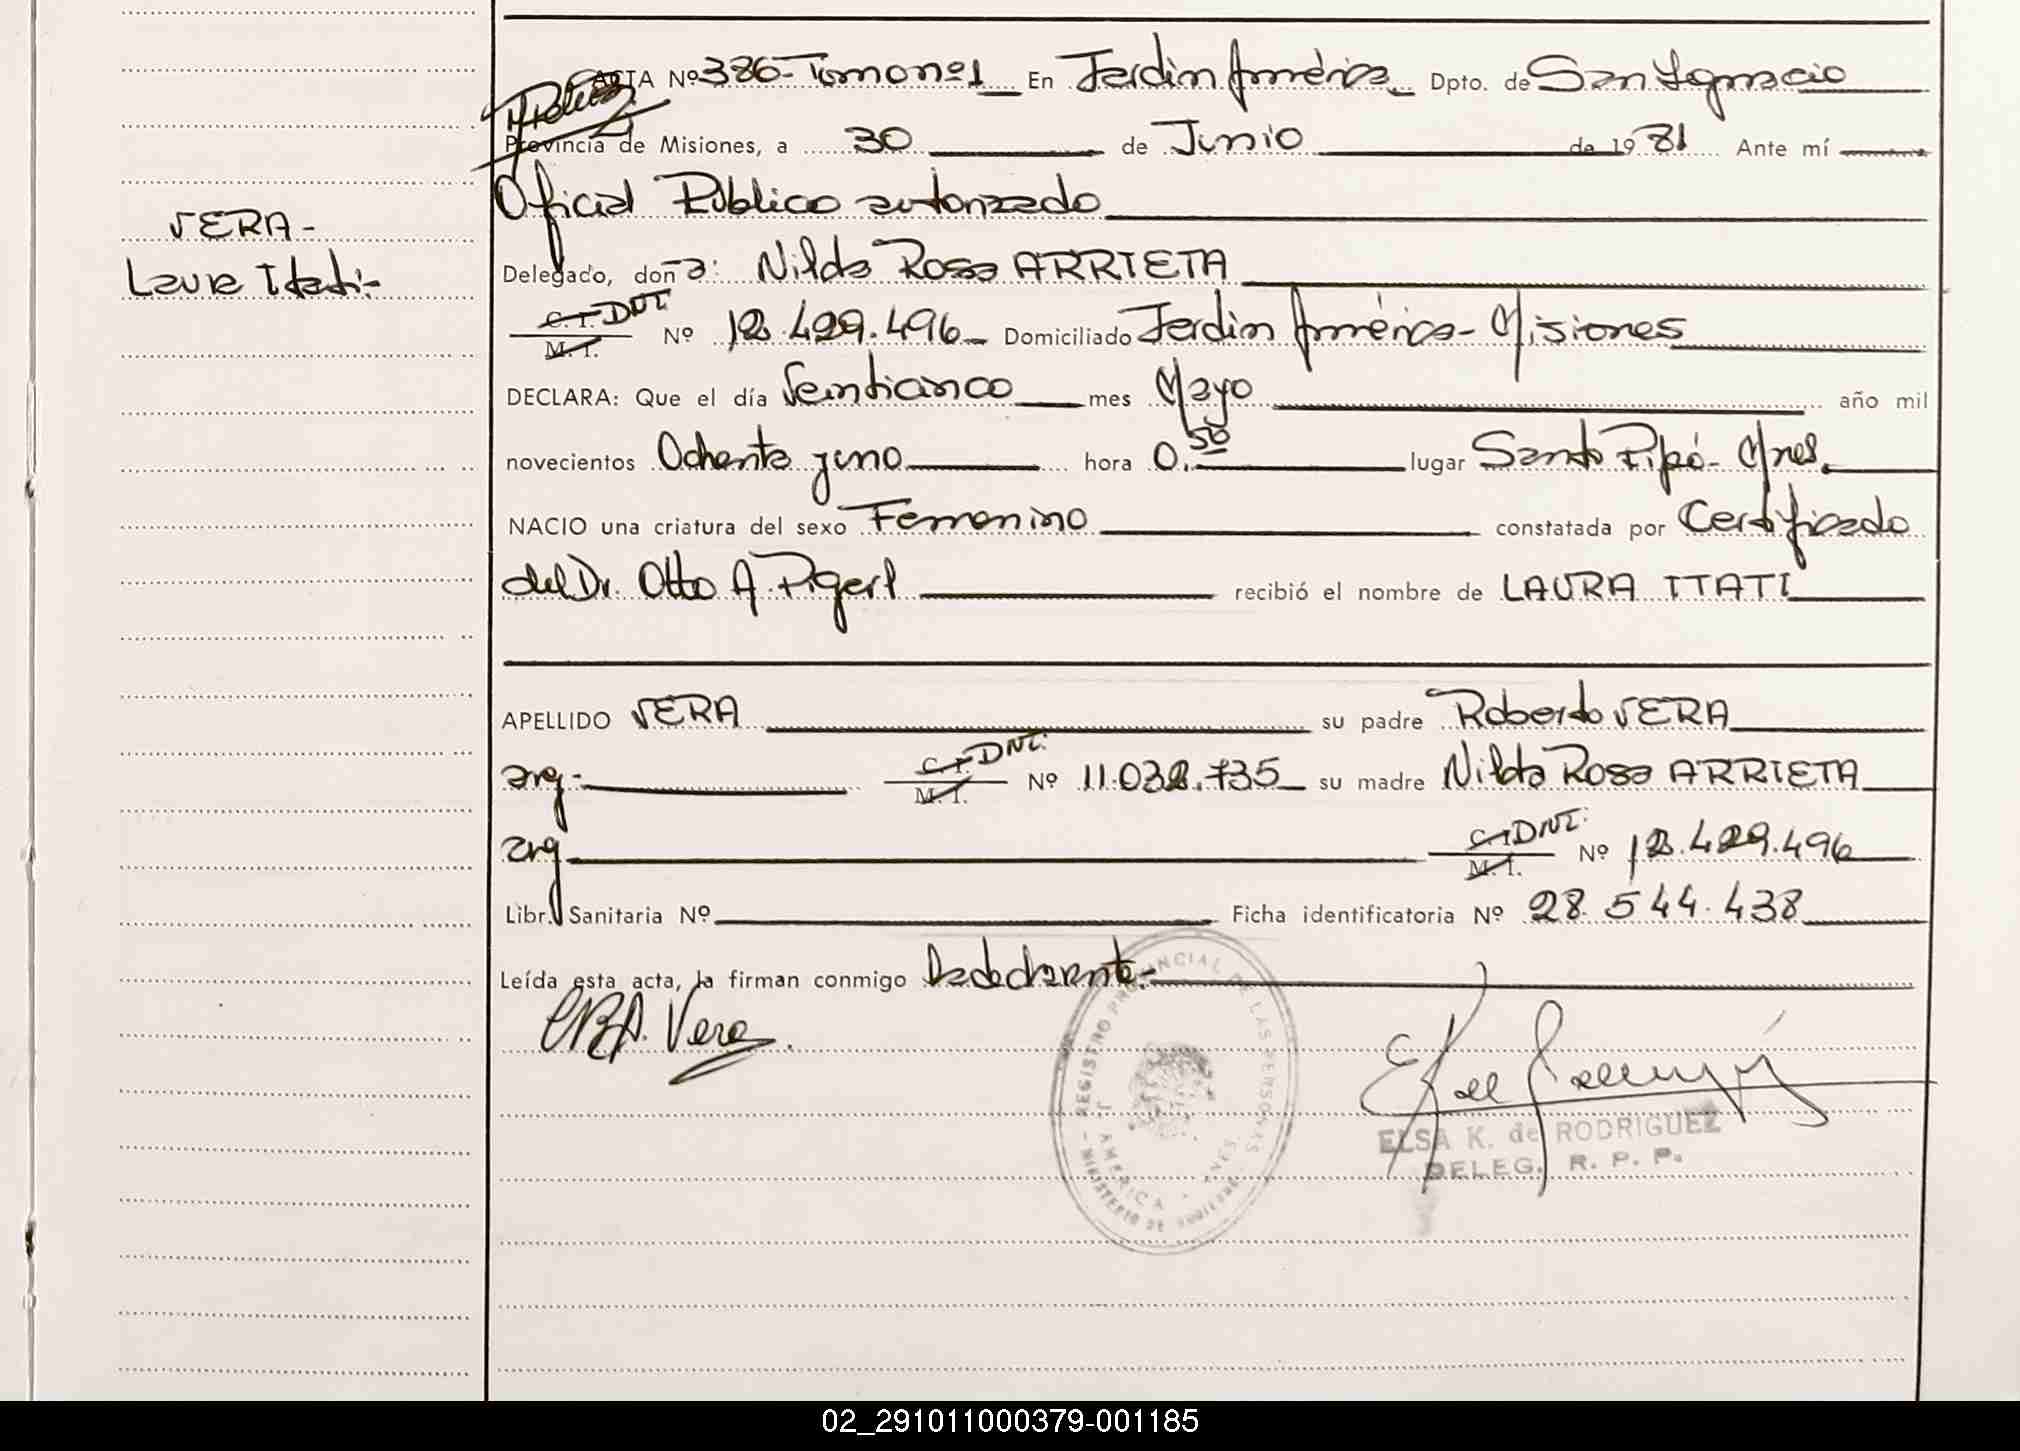 ACTA Nº 386- Tomo nº1 En Jardin América Dpto. de San Ignacio
Provincia de Misiones, a 30 de Junio de 1981 Ante mí
Oficial Público autorizado
VERA-
Delegado, don a: Nilda Rosa ARRIETA
Laura Itati-
C. I. DNI
M. I. Nº 12.429.496- Domiciliado Jardin América- Misiones
DECLARA: Que el día Veinticinco mes Mayo año mil
novecientos Ochenta y uno hora 0.50 lugar Santo Pipó- Mnes.
NACIO una criatura del sexo Femenino constatada por Certificado
del Dr. Otto A. Pigerl recibió el nombre de LAURA ITATI
APELLIDO VERA su padre Roberto VERA
arg- C. I. DNI. M. I. Nº 11.032.735 su madre Nilda Rosa ARRIETA
arg C. I. DNI. M. I. Nº 12.429.496
Libr. Sanitaria Nº Ficha identificatoria Nº 28.544.438
Leída esta acta, la firman conmigo La declarante.-
Vera
REGISTRO PROVINCIAL DE LAS PERSONAS
J. AMERICA - MNES.
- MINISTERIO DE GOBIERNO -
ELSA K. de RODRIGUEZ
DELEG. R. P. P.
02_291011000379-001185